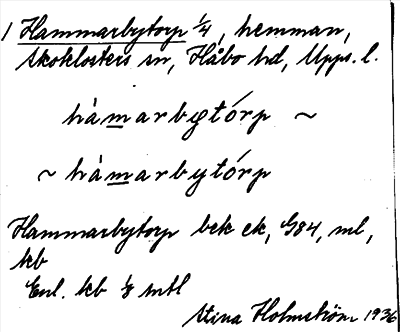 1 Hammarbytorp 1/4, hemman,
Skoklosters sn, Håbo hd, Upps. l.
hàmarbytórp ~
~ hàmarbytórp
Hammarbytorp bek ek, G84, ml,
kb
Enl. kb 1/8 mtl
Stina Holmström 1936